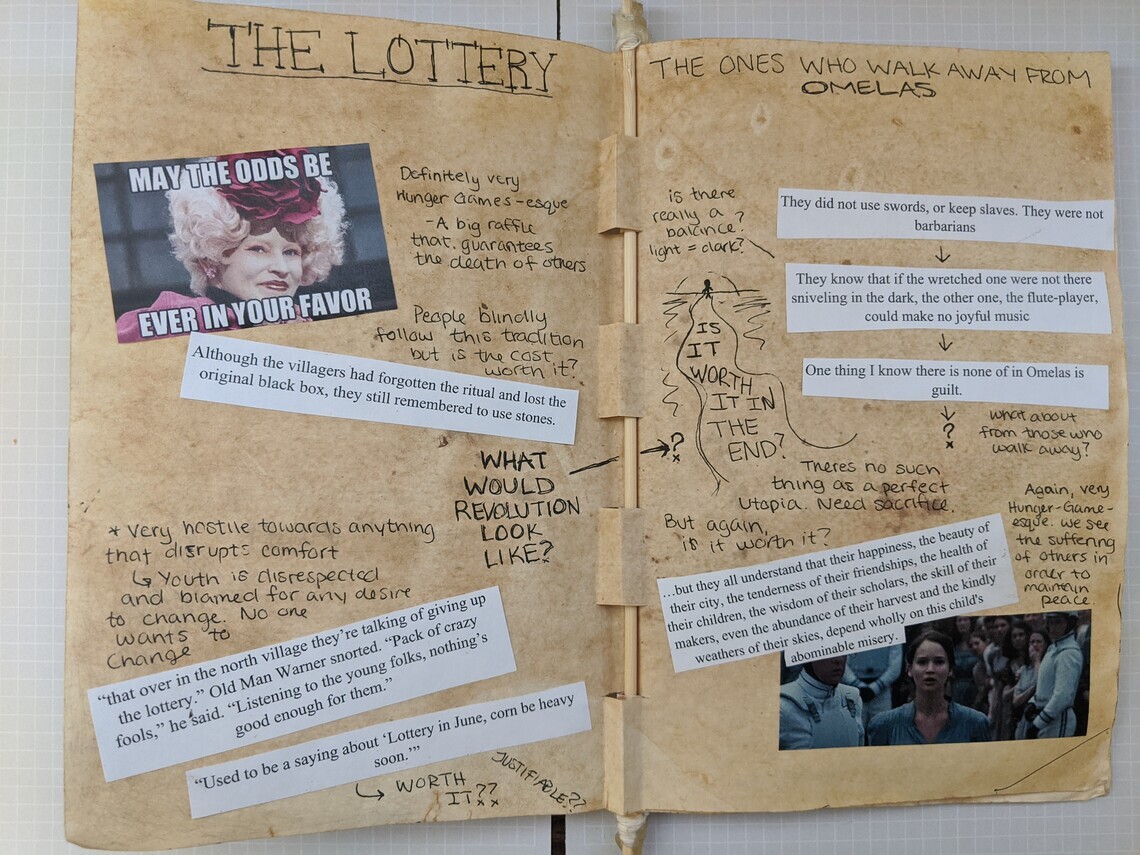 THE LOTTERY
MAY THE ODDS BE
EVER IN YOUR FAVOR
Definitely very
Hunger Games-esque
-A big raffle
that guarantees
the death of others
People blindly
follow this tradition
but is the cost
worth it?
Although the villagers had forgotten the ritual and lost the
original black box, they still remembered to use stones.
WHAT
WOULD
REVOLUTION
LOOK
LIKE?
* Very hostile towards anything
that disrupts comfort
↳ Youth is disrespected
and blamed for any desire
to change. No one
wants to
change
“that over in the north village they’re talking of giving up
the lottery.” Old Man Warner snorted. “Pack of crazy
fools,” he said. “Listening to the young folks, nothing’s
good enough for them.”
“Used to be a saying about ‘Lottery in June, corn be heavy
soon.’”
↳ WORTH
IT??
JUSTIFIABLE??
THE ONES WHO WALK AWAY FROM
OMELAS
is there
really a
balance?
light = dark?
They did not use swords, or keep slaves. They were not
barbarians
↓
They know that if the wretched one were not there
sniveling in the dark, the other one, the flute-player,
could make no joyful music
↓
One thing I know there is none of in Omelas is
guilt.
↓
?
what about
from those who
walk away?
IS
IT
WORTH
IT IN
THE
END?
→ ?
Theres no such
thing as a perfect
Utopia. Need sacrifice.
But again,
is it worth it?
Again, very
Hunger-Game-
esque. we see
the suffering
of others in
order to
maintain
peace.
…but they all understand that their happiness, the beauty of
their city, the tenderness of their friendships, the health of
their children, the wisdom of their scholars, the skill of their
makers, even the abundance of their harvest and the kindly
weathers of their skies, depend wholly on this child's
abominable misery.